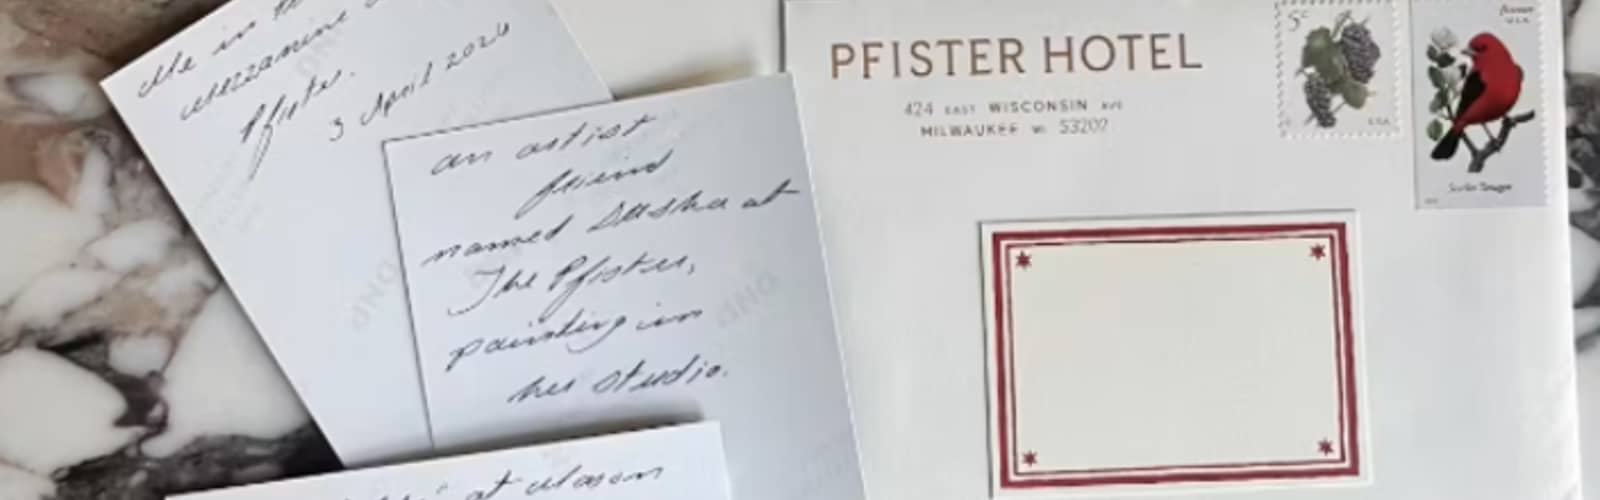 Me in the
mezzanine
Pfister.
3 April 2026
an artist
friend
named Dasha at
The Pfister,
painting in
her studio.
at Mason
PFISTER HOTEL
424 EAST WISCONSIN AVE
MILWAUKEE WI 53202
5c
USA
forever
USA
Scarlet Tanager